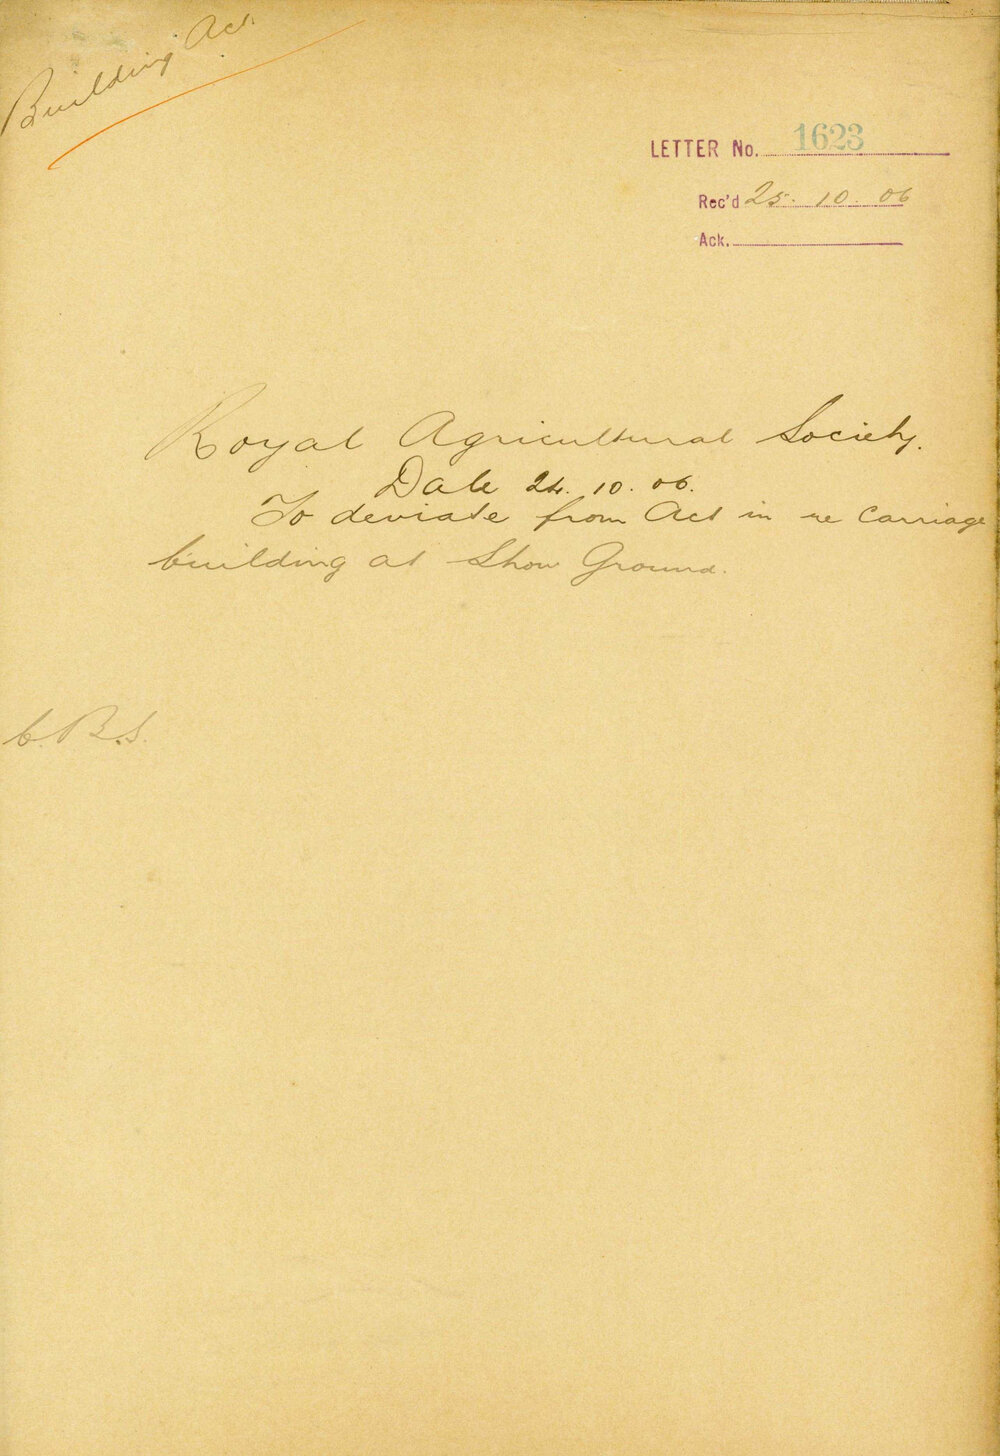 Building Act.
LETTER No. 1623
Rec'd 25. 10. 06
Ack.
Royal Agricultural Society.
Date 24. 10. 06.
To deviate from Act in re Carriage
building at Show Ground.
C.B.S.